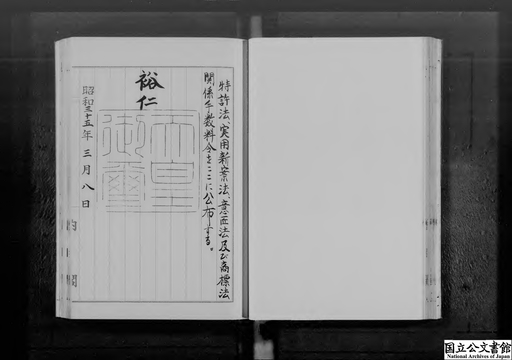 特許法、実用新案法、意匠法及び商標法
関係手数料令をここに公布する。
裕仁
天皇
御璽
昭和三十五年三月八日
内閣
国立公文書館
National Archives of Japan